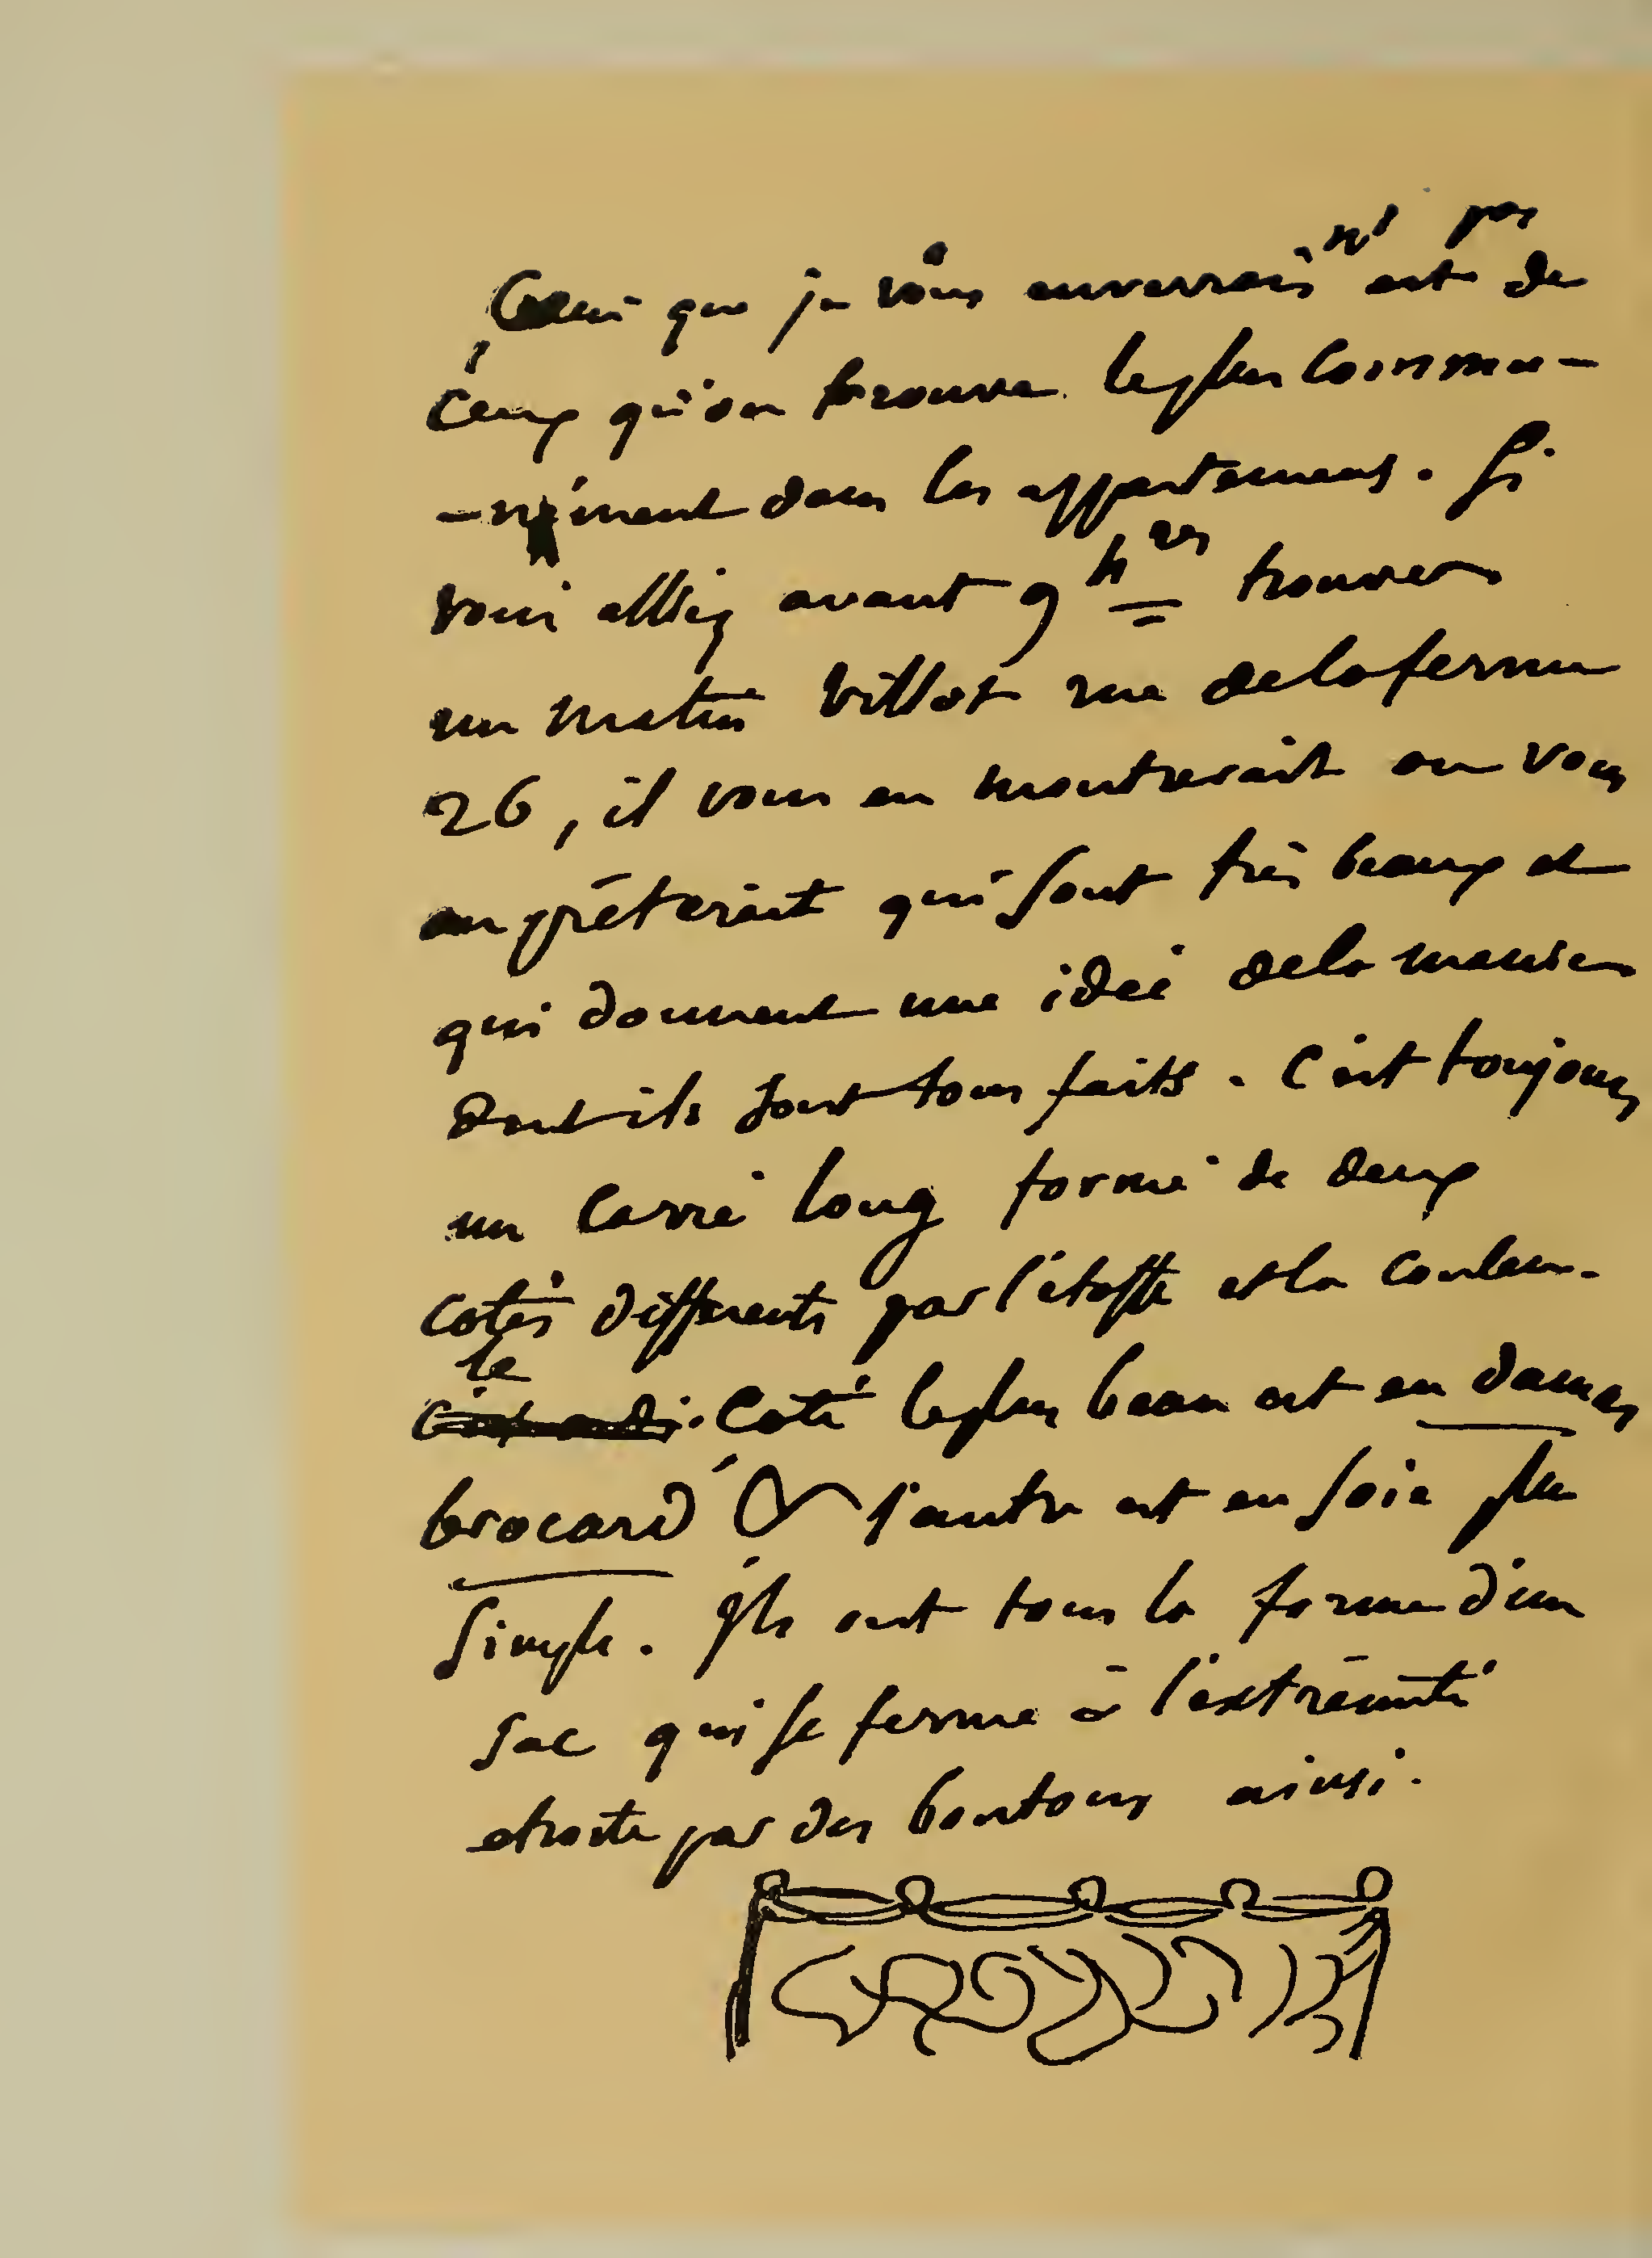 Celui que je vous enverrais n'est pas de
ceux qu'on trouve le plus commu-
-nément dans les appartemens. Si
vous alliez avant 9 h res trouver
un matin Villot rue de la ferme
26, il vous en montrerait ou vous
en prêterait qui sont très beaux et
qui donnent une idée de la manière
dont ils sont tous faits. C'est toujours
un carré long formé de deux
cotés différents par l'étoffe et la couleur.
le coté le plus beau est en damas
brocard & l'autre est en soie plus
simple. Ils ont tous la forme d'un
sac qui se ferme à l'extrémité
etroite par des boutons ainsi.